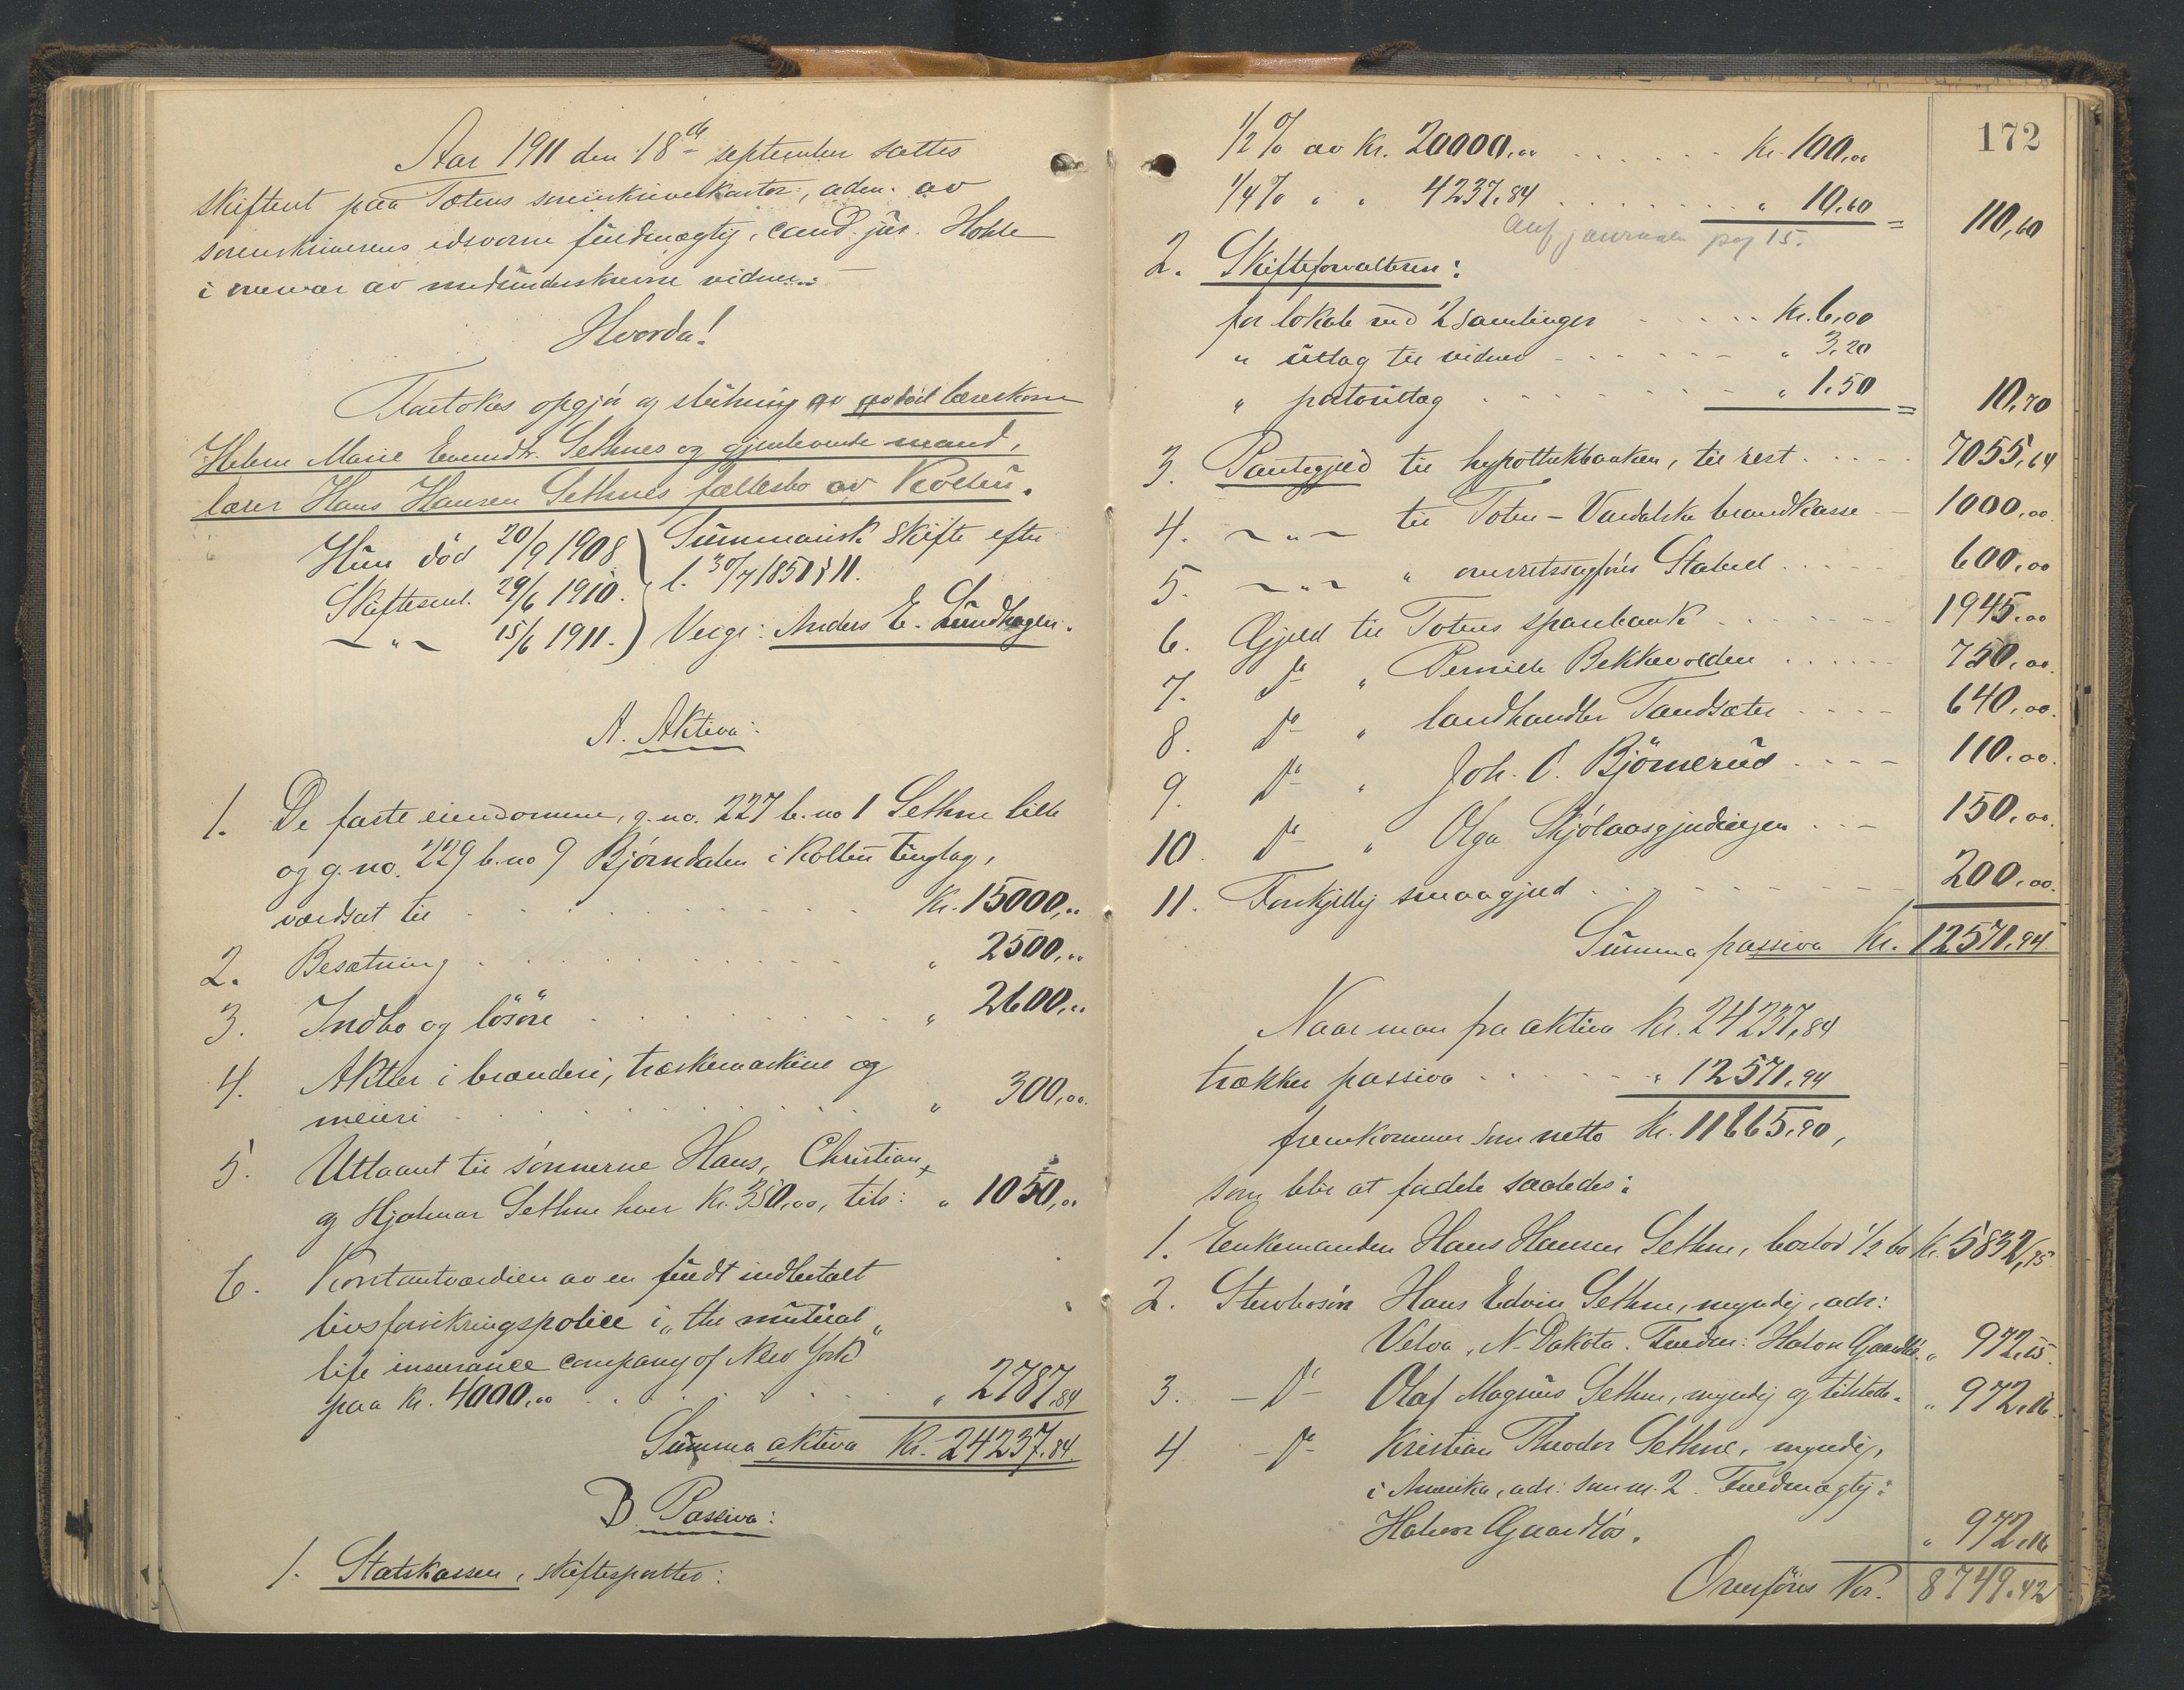 Aar 1911 den 18de september sattes
skifteret paa Totens sorenskriverkontor, adm. av
sorenskriverens edsvorne fuldmægtig, cand. jur. Hohle
i overvær av medunderskrevne vidner.
Hvorda!
Foretokes opgjør og slutning av avdød lærerkone
Helene Marie Evensdtr. Sethnes og gjenlevende mand,
lærer Hans Hansen Sethnes fællesbo av Kolbu.
Hun død 20/9 1908 Summarisk skifte efter
Skiftesaml. 29/6 1910. l. 30/7 1851 § 11.
— " — 15/6 1911. Verge: Anders E. Lundhagen.
A. Aktiva:
1. De faste eiendomme, g.no. 227 b.no 1 Sethne lille
og g.no. 229 b.no 9 Bjørndalen i Kolbu tinglag,
værdsat til Kr. 15000,00
2. Besætning " 2500,00
3. Indbo og løsøre " 2600,00
4. Aktier i brænderi, træskemaskine og
meieri " 300,00.
5. Utlaant til sønnerne Hans, Christian
og Hjalmar Sethne hver Kr. 350,00, tils: " 1050,00
6. Kontantværdien av en fuldt indbetalt
livsforsikringspolice i "the mutual
life insurance company of New York"
paa Kr. 4000,00 " 2787,84
Summa aktiva Kr. 24237,84.
B. Passiva:
1. Statskassen, skifteportter:
172
1/2 % av Kr. 20000,00 Kr. 100,00
1/4 % " " 4237,84 " 10,60 = 110,60
anf journalen pag 15.
2. Skifteforvalteren:
for lokale ved 2 samlinger Kr. 6,00
" utlag til vidner " 3,20
" portoutlag " 1,50 = 10,70
3. Pantegjeld til hypothekbanken, til rest 7055,64
4. — " — til Toten-Vardalske brandkasse 1000,00
5. — " — " overretssagfører Stabell 600,00
6. Gjeld til Totens sparebank 1945,00
7. do " Pernille Bekkevolden 750,00
8. do " landhandler Tandsæter 640,00.
9. do " Joh. O. Bjørnerud 110,00.
10. do " Olga Skjølaasgjerdingen 150,00.
11. Forskjellig smaagjeld 200,00.
Summa passiva Kr. 12571,94
Naar man fra aktiva Kr. 24237,84
trækker passiva " 12571,94
fremkommer som netto Kr. 11665,90,
som blir at fordele saaledes:
1. Enkemanden Hans Hansen Sethne, boslod 1/2 bo Kr. 5832,95
2. Stervbosøn Hans Edvin Sethne, myndig, adr:
Velva, N-Dakota. Fuldm: Halvor Gaardløs. " 972,15.
3. — do — Olaf Magnus Sethne, myndig og tilstede. " 972,16.
4 — do — Kristian Theodor Sethne, myndig,
i Amerika, adr: som nr. 2. Fuldmægtig:
Halvor Gaardløs. " 972,16
Overføres Kr. 8749,42